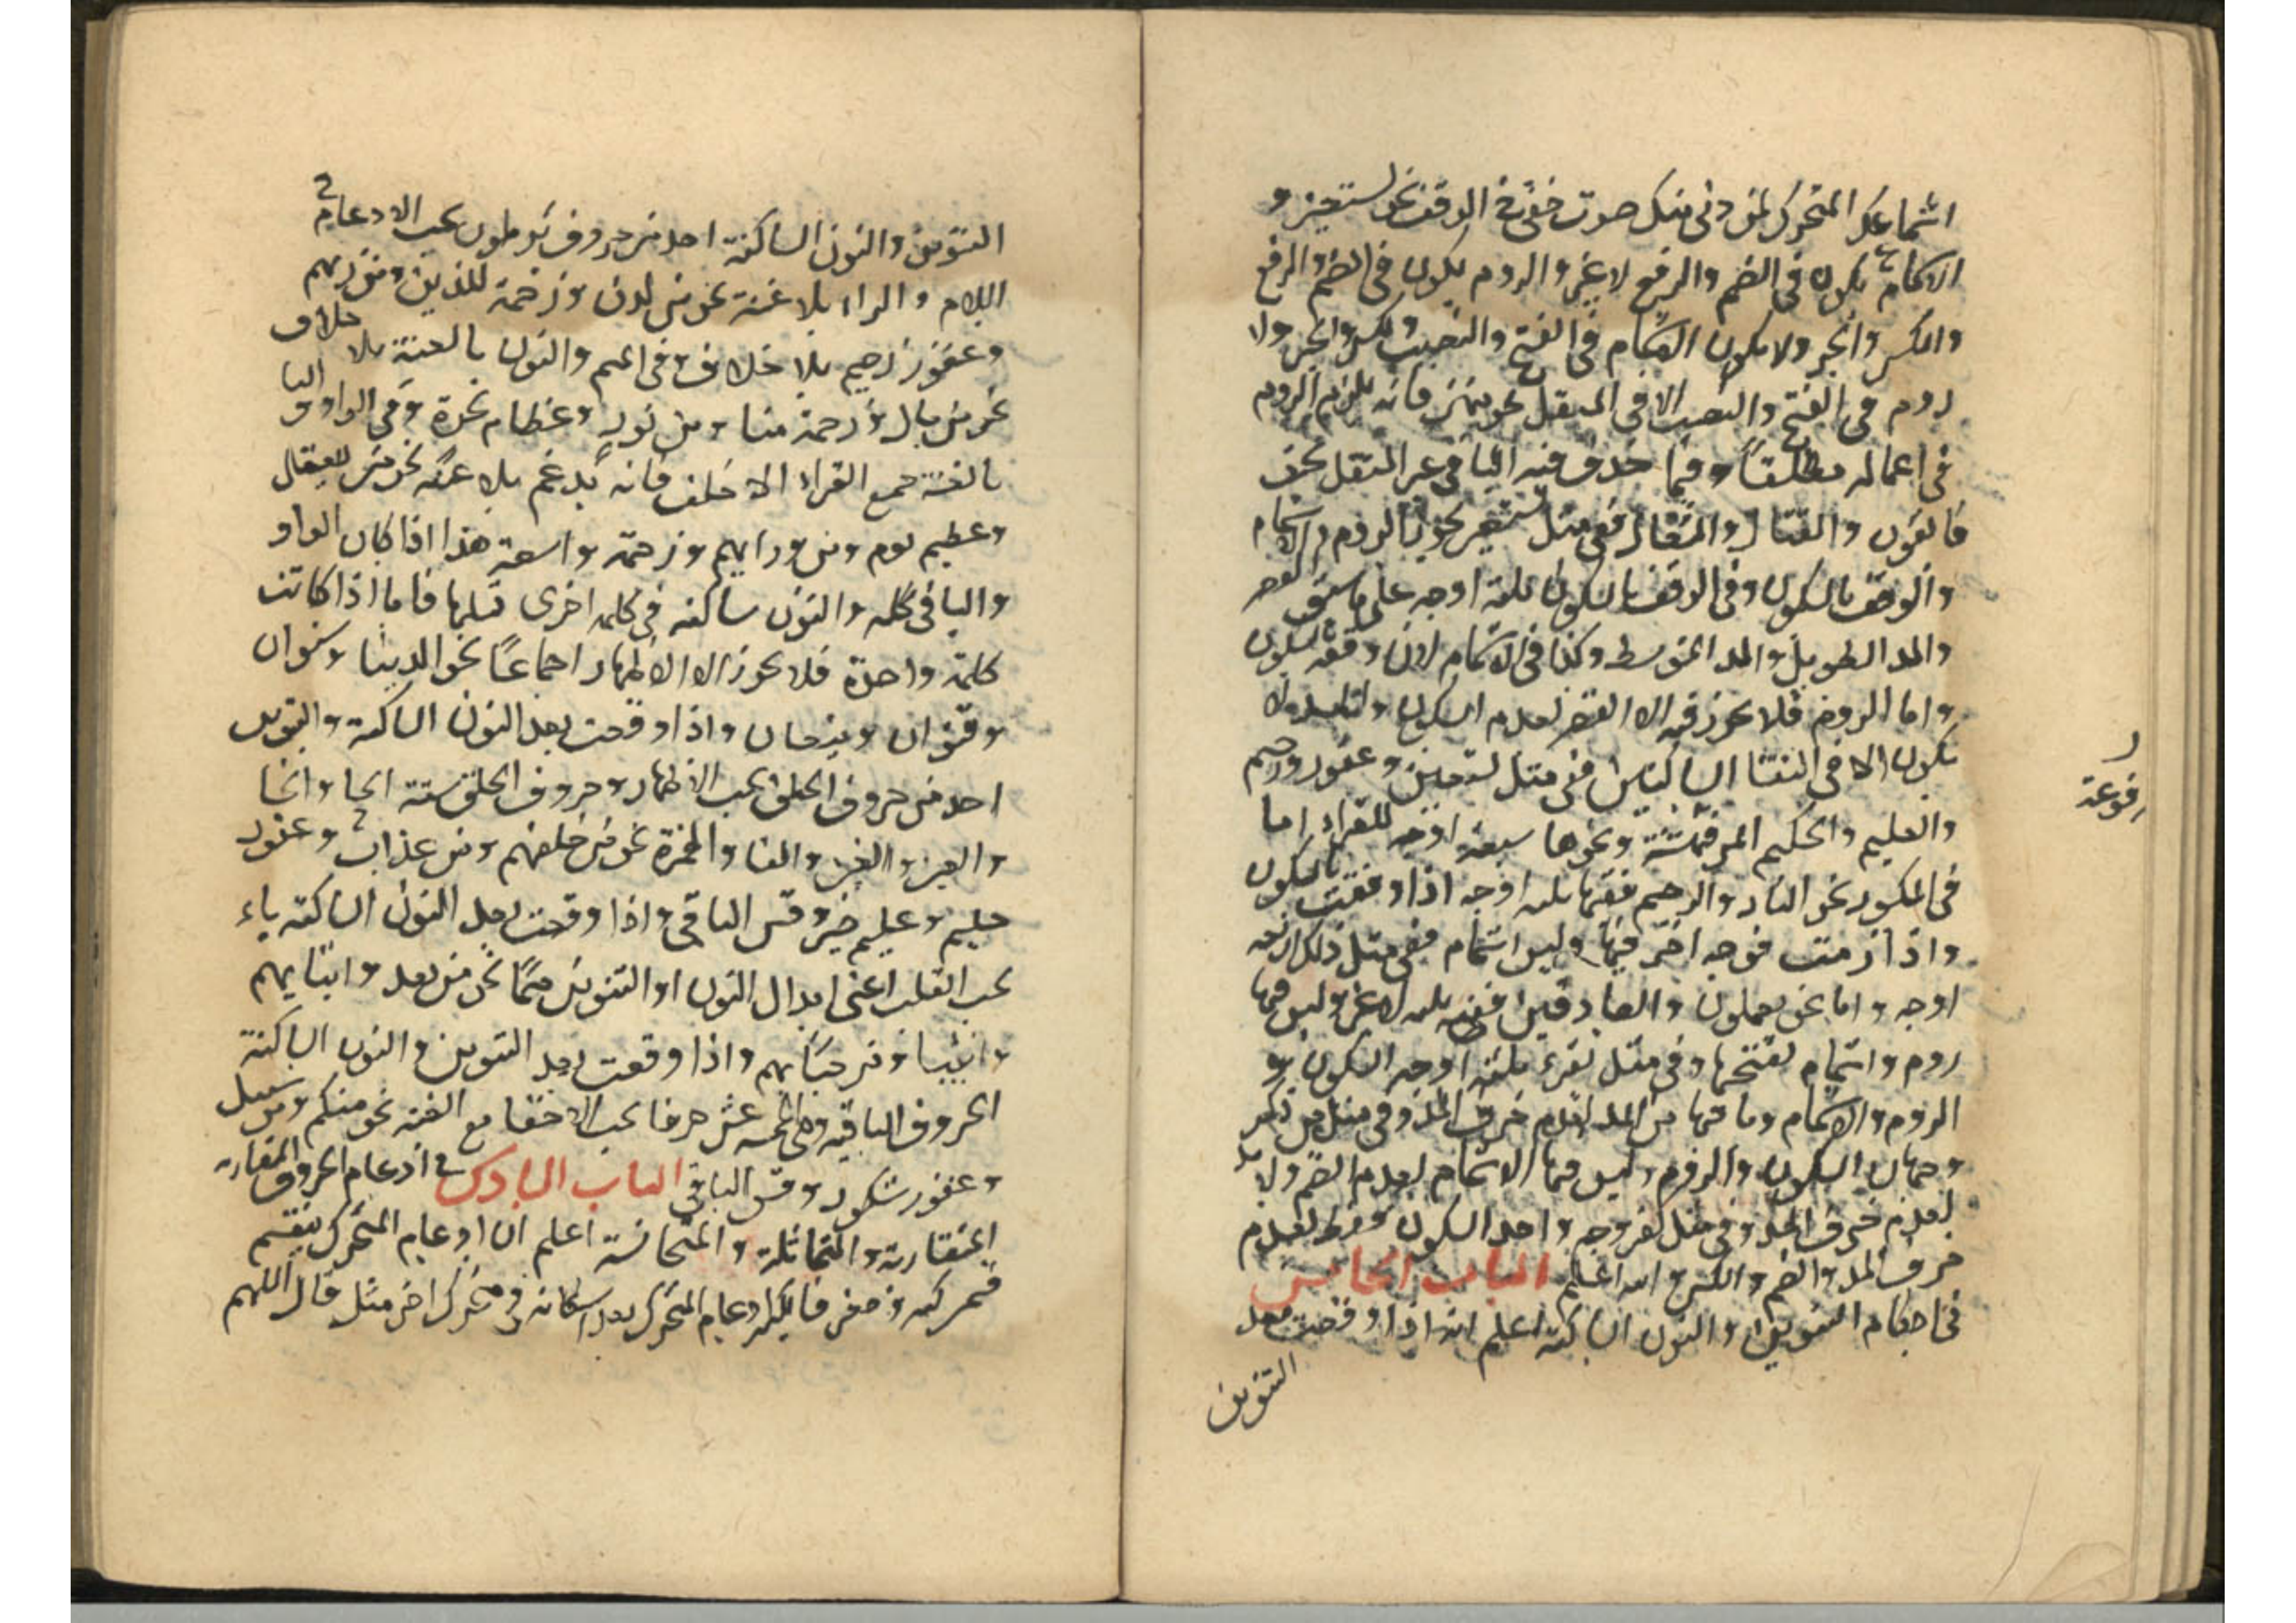 اسماعك المتحرك لمن دنى منك صوت خفى فى الوقف نحو نستعين و
الاشمام يكون فى الضم والرفع لا غير والروم يكون فى الضم والرفع
والكسر والجر ولا يكون الاشمام فى الفتح والنصب والكسر والجر ولا
روم فى الفتح والنصب الا فى
فى اعماله مطلقا وفيما حذف فيه اليا فى
فاتقون والمتعال ففى مثل نستعين يجوز الروم والاشمام
والوقف بالسكون وفى الوقف بالسكون ثلثة اوجه على ما سبق القصر
والمد الطويل والمد المتوسط وكذا فى الاشمام لان وقفه بالسكون
واما الروم فلا يجوز فيه الا القصر لعدم السكون والمد لا
يكون الا فى التقا الساكنين ففى مثل نستعين وغفور رحيم
والعليم والحكيم المرفوعة ونحوها سبعة اوجه للقراء اما
رفوعة
فى المكسور نحو النار والرحيم ففيها ثلثة اوجه اذا وقفت بالسكون
واذا رمت فوجه اخر فيها وليس اشمام ففى مثل ذلك اربعة
اوجه واما نحو يعملون والصادقين ففيه ثلثة لا غير وليس فيها
روم واشمام لفتحها وفى مثل نقرء ثلثة اوجه السكون و
الروم والاشمام وما فيها من المد لعدم حرف المد وفى مثل من ذكر
وجهان السكون والروم وليس فيها الاشمام لعدم الضم ولا مد
لعدم حرف المد وفى مثل كفر وجه واحد السكون فقط لعدم
حرف المد والضم والكسر والله اعلم الباب الخامس
فى احكام التنوين والنون الساكنة اعلم انه اذا وقعت بعد
التنوين
التنوين والنون الساكنة احد من حروف يرملون يجب الادغام
اللام والراء بلا غنة نحو من لدن ورحمة للذين ومن ربهم
وغفور رحيم بلا خلاف وفى الميم والنون بالغنة بلا خلاف
نحو من مال ورحمة منا ومن نور وعظام نخرة وفى الواو و اليا
بالغنة جميع القراء الا خلف فانه يدغم بلا غنة نحو من يقال
وعظيم يوم ومن ورايهم ورحمة واسعة هذا اذا كان الواو
واليا فى كلمه والنون ساكنه فى كلمه اخرى قبلها فاما اذا كانت
كلمة واحدة فلا يجوز الا الاظهار اجماعا نحو الدنيا وصنوان
وقنوان وبنيان واذا وقعت بعد النون الساكنة والتنوين
احد من حروف الحلق يجب الاظهار وحروف الحلق ستة الحا والخا
والعين والغين والها والهمزة نحو من خلفهم ومن عذاب وغفور
حليم وعليم خبير وقس الباقى واذا وقعت بعد النون الساكنة باء
يجب القلب اعنى ابدال النون او التنوين ميما نحو من بعد وانبايهم
وانبيا واذا وقعت بعد التنوين والنون الساكنة
الحروف الباقيه وهى خمسه عشر حرفا يجب الاخفا مع الغنه نحو منكم ومن سبيل
وغفور شكور وقس الباقى الباب السادس فى ادغام الحروف المتقاربه
المتقاربة والمتماثلة والمتجانسة اعلم ان ادغام المتحرك ينقسم
قسمين كبير وصغير فالكبير ادغام المتحرك بعد اسكانه فى متحرك اخر مثل قال اللهم